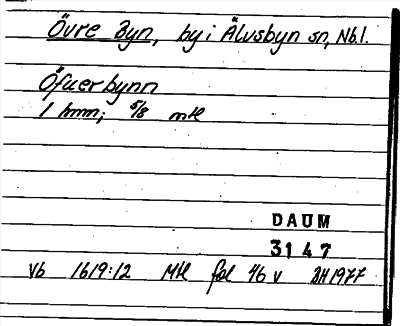 Övre Byn, by i Älvsbyn sn, Nb.l.
Öfuerbynn
1 hmn; 5/8 mtl
DAUM
3147
Vb 1619:12 Mtl fol 46 v BH 1977